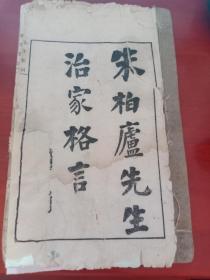 朱柏廬先生
治家格言